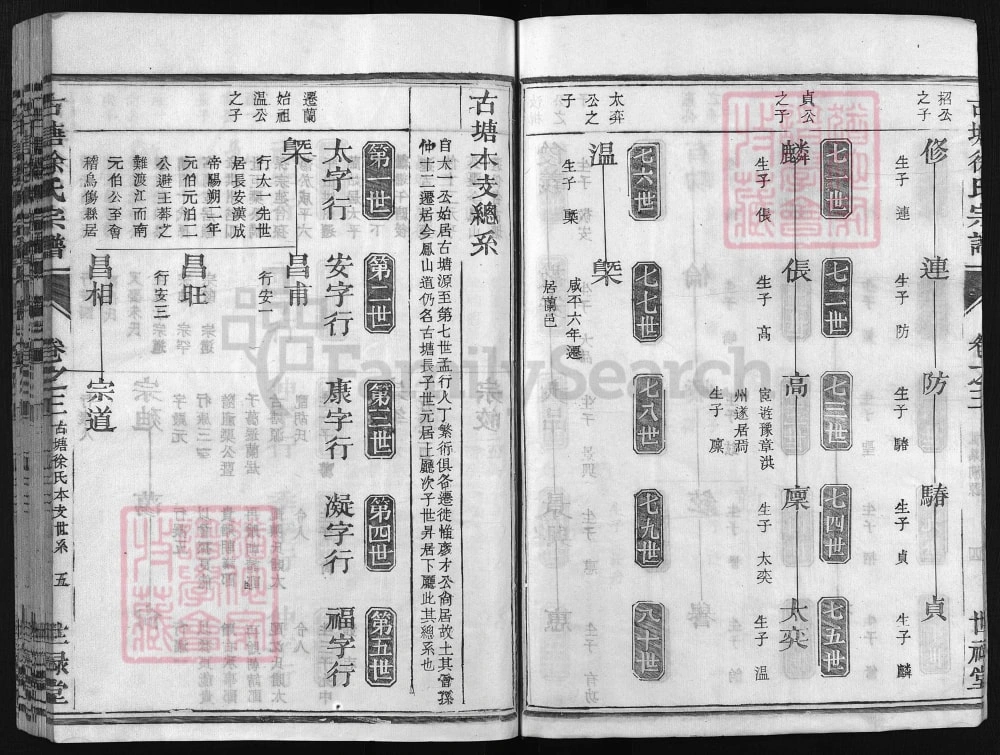 招公之子
修
生子 連
連
生子 防
防
生子 𩥇
生子 貞
貞
生子 麟
七一世
七二世
七三世
七四世
七五世
貞公之子
麟
生子 倀
倀
生子 高
高
宦遊豫章洪
州遂居焉
生子 廩
廩
生子 太奕
太奕
生子 溫
七六世
七七世
七八世
七九世
八十世
太奕公之子
溫
生子 㮣
咸平六年遷
居蘭邑
古塘本支總系
自太一公始居古塘源至第七世孟行人丁繁衍俱各遷徙惟彥才公尚居故土其曾孫
仲十二遷居今鳳山道仍名古塘長子世元居上廳次子世昇居下廳此其總系也
第一世
第二世
第三世
第四世
第五世
太字行
安字行
康字行
凝字行
福字行
遷蘭始祖溫公之子
行太一先世
居長安漢成
帝陽朔二年
元伯元洎二
公避王莽之
難渡江而南
元伯公至會
稽烏傷縣居
昌甫
行安一
昌旺
行安三
昌相
宗道
古塘徐氏宗譜
卷之三
古塘徐氏本支世系
五
世祿堂
古塘徐氏宗譜
卷之三
世祿堂
FamilySearch